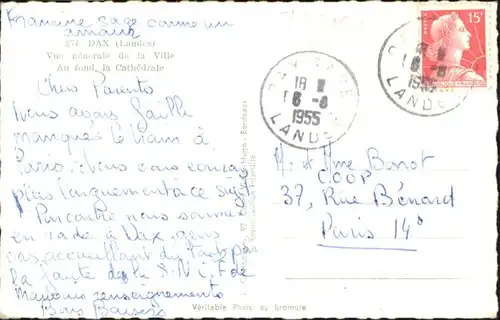 Francine sage comme un
amour
274 DAX (Landes)
Vue générale de la Ville
Au fond, la Cathédrale
Chers Parents
Nous avons failli
manquer le train à
Paris, nous vous
plus longuement à ce sujet
Par contre nous sommes
en rade à Dax, gens
pas accueillant du tout par
la faute de la S.N.C.F de
mauvais renseignements
Bons Baisers
15F
DAX GARE
18 H
6-8
1955
LANDES
DAX GARE
18 H
6-8
1955
LANDES
M. et Mme Bonot
COOP
37, Rue Bénard
Paris 14e
Bordeaux
Véritable Photo au bromure